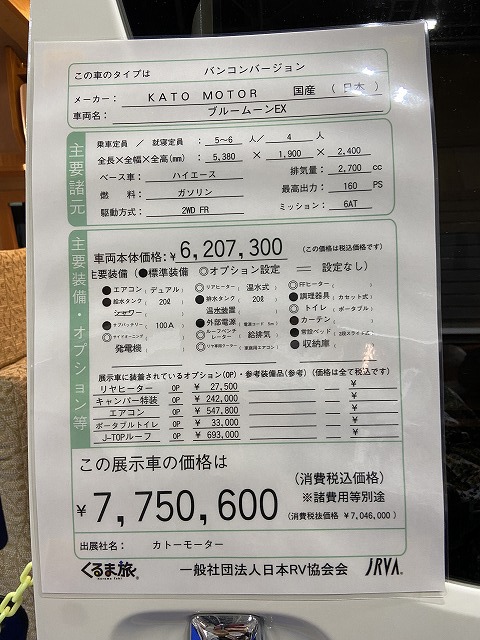 この車のタイプは バンコンバージョン
メーカー: KATO MOTOR 国産 ( 日本 )
車両名: ブルームーンEX
主要諸元
乗車定員 / 就寝定員 5~6 人/ 4 人
全長×全幅×全高(mm) 5,380 × 1,900 × 2,400
ベース車: ハイエース 排気量: 2,700 cc
燃 料: ガソリン 最高出力: 160 PS
駆動方式: 2WD FR ミッション: 6AT
主要装備・オプション等
車両本体価格:¥6,207,300 (この価格は税込価格です)
主要装備 (●標準装備 ◎オプション設定 ══ 設定なし)
●エアコン(デュアル) ◎リヤヒーター(温水式) ◎FFヒーター( )
●給水タンク(20ℓ) ●排水タンク(20ℓ) ●調理器具(カセット式)
シャワー 温水装置 ◎トイレ(ポータブル)
●サブバッテリー(100A) ●外部電源(電源コード 5m) ●カーテン( )
◎サイドオーニング( ) ◎ルーフベンチレーター(給排気) ●常設ベッド(2段スライド式)
発電機 ◎リヤ専用クーラー(家庭用エアコン) ●収納庫
展示車に装着されているオプション(OP)・参考装備品(参考)(価格は全て税込です)
リヤヒーター OP ¥ 27,500 ¥
キャンパー特装 OP ¥ 242,000 ¥
エアコン OP ¥ 547,800 ¥
ポータブルトイレ OP ¥ 33,000 ¥
J-TOPルーフ OP ¥ 693,000 ¥
この展示車の価格は
¥7,750,600 (消費税込価格)
※諸費用等別途
(消費税抜価格 ¥7,046,000)
出展社名: カトーモーター
くるま旅 kuruma tabi 一般社団法人日本RV協会会 JRVA